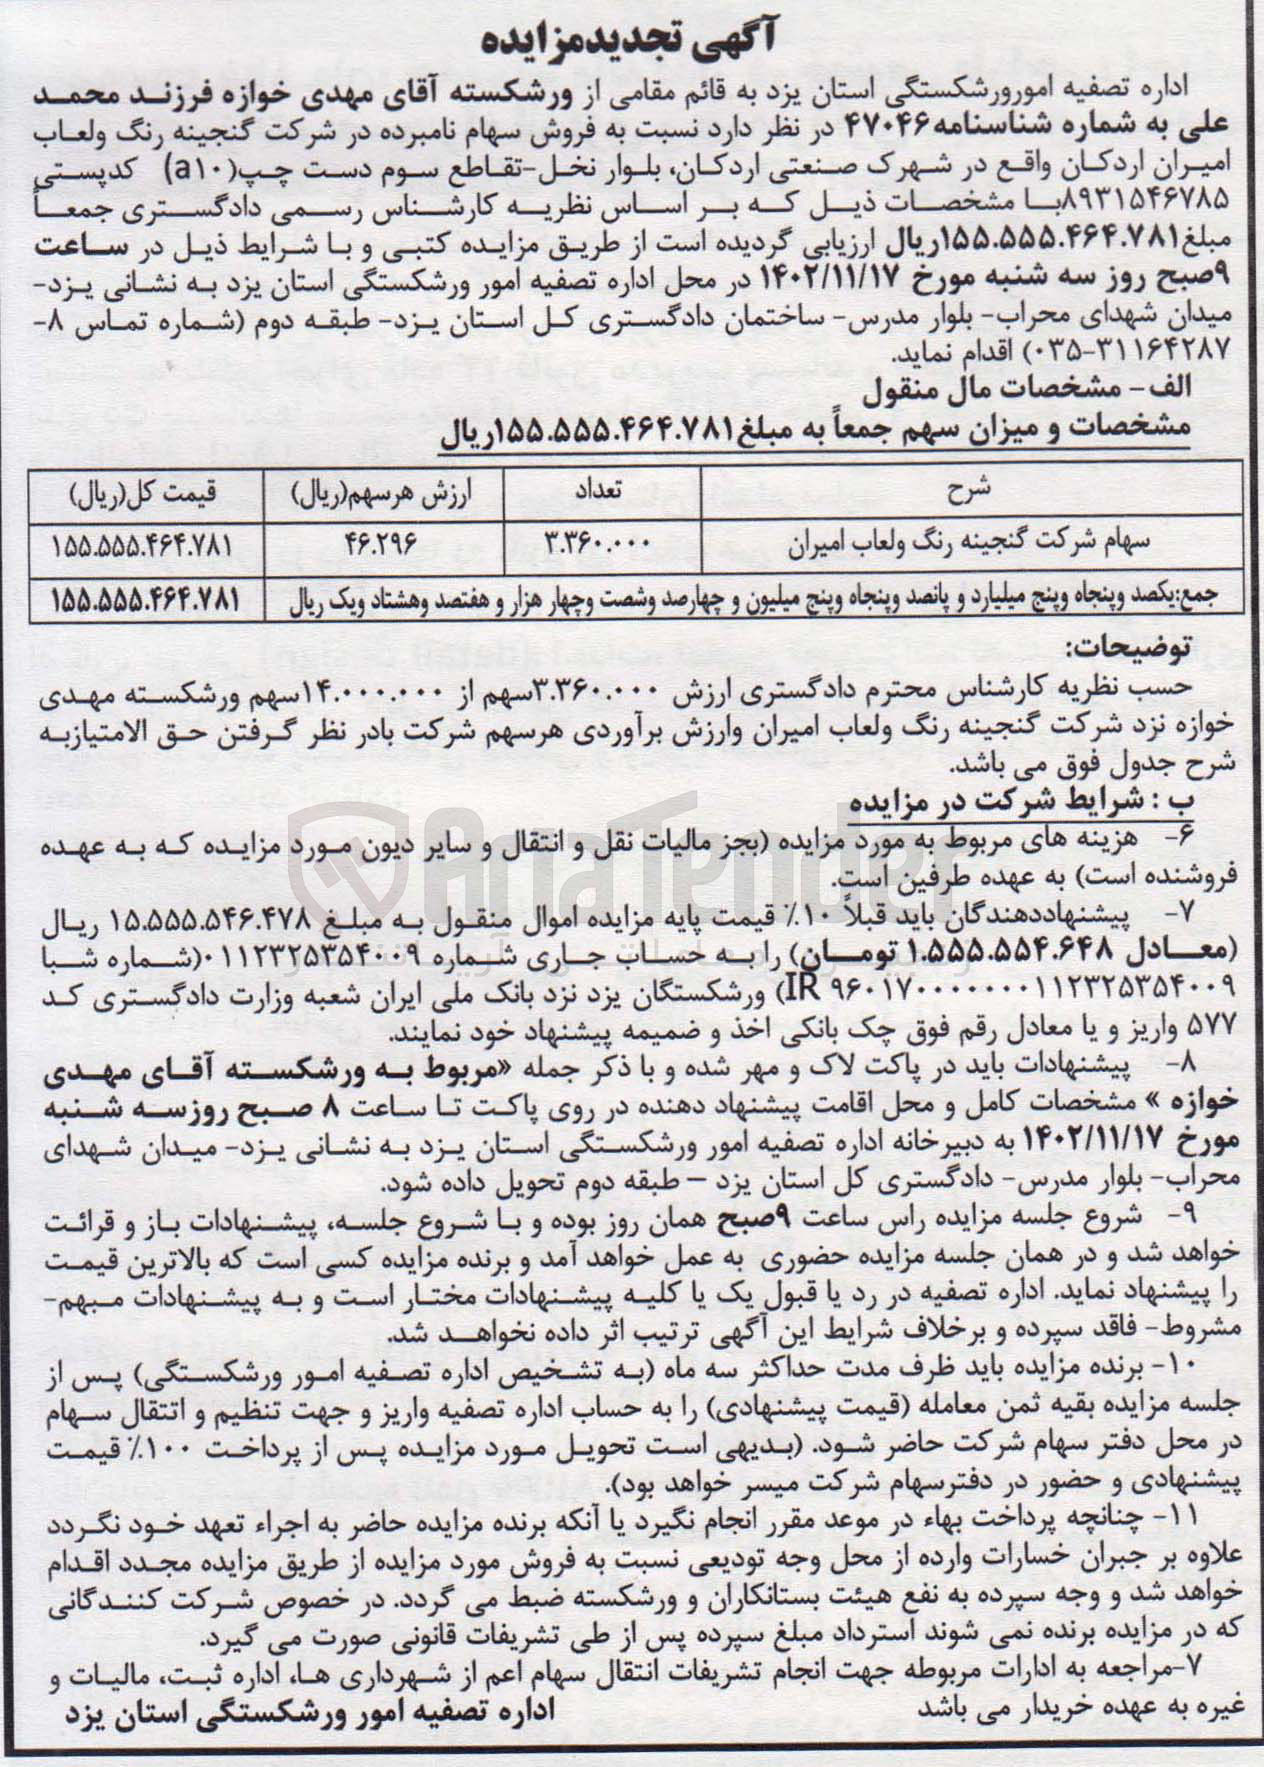 آگهی تجدیدمزایده
اداره تصفیه امورورشکستگی استان یزد به قائم مقامی از ورشکسته آقای مهدی خوازه فرزند محمد
علی به شماره شناسنامه۴۷۰۴۶ در نظر دارد نسبت به فروش سهام نامبرده در شرکت گنجینه رنگ ولعاب
امیران اردکان واقع در شهرک صنعتی اردکان، بلوار نخل-تقاطع سوم دست چپ(a۱۰) کدپستی
۸۹۳۱۵۴۶۷۸۵با مشخصات ذیل که بر اساس نظریه کارشناس رسمی دادگستری جمعاً
مبلغ۱۵۵.۵۵۵.۴۶۴.۷۸۱ریال ارزیابی گردیده است از طریق مزایده کتبی و با شرایط ذیل در ساعت
۹صبح روز سه شنبه مورخ ۱۴۰۲/۱۱/۱۷ در محل اداره تصفیه امور ورشکستگی استان یزد به نشانی یزد-
میدان شهدای محراب- بلوار مدرس- ساختمان دادگستری کل استان یزد- طبقه دوم (شماره تماس ۸-
۰۳۵-۳۱۱۶۴۲۸۷) اقدام نماید.
الف- مشخصات مال منقول
مشخصات و میزان سهم جمعاً به مبلغ۱۵۵.۵۵۵.۴۶۴.۷۸۱ریال
شرح تعداد ارزش هرسهم(ریال) قیمت کل(ریال)
سهام شرکت گنجینه رنگ ولعاب امیران ۳.۳۶۰.۰۰۰ ۴۶.۲۹۶ ۱۵۵.۵۵۵.۴۶۴.۷۸۱
جمع:یکصد وپنجاه وپنج میلیارد و پانصد وپنجاه وپنج میلیون و چهارصد وشصت وچهار هزار و هفتصد وهشتاد ویک ریال ۱۵۵.۵۵۵.۴۶۴.۷۸۱
توضیحات:
حسب نظریه کارشناس محترم دادگستری ارزش ۳.۳۶۰.۰۰۰سهم از ۱۴.۰۰۰.۰۰۰سهم ورشکسته مهدی
خوازه نزد شرکت گنجینه رنگ ولعاب امیران وارزش برآوردی هرسهم شرکت بادر نظر گرفتن حق الامتیازبه
شرح جدول فوق می باشد.
ب : شرایط شرکت در مزایده
۶- هزینه های مربوط به مورد مزایده (بجز مالیات نقل و انتقال و سایر دیون مورد مزایده که به عهده
فروشنده است) به عهده طرفین است.
۷- پیشنهاددهندگان باید قبلاً ۱۰٪ قیمت پایه مزایده اموال منقول به مبلغ ۱۵.۵۵۵.۵۴۶.۴۷۸ ریال
(معادل ۱.۵۵۵.۵۵۴.۶۴۸ تومان) را به حساب جاری شماره ۰۱۱۲۳۲۵۳۵۴۰۰۹(شماره شبا
IR ۹۶۰۱۷۰۰۰۰۰۰۰۰۱۱۲۳۲۵۳۵۴۰۰۹) ورشکستگان یزد نزد بانک ملی ایران شعبه وزارت دادگستری کد
۵۷۷ واریز و یا معادل رقم فوق چک بانکی اخذ و ضمیمه پیشنهاد خود نمایند.
۸- پیشنهادات باید در پاکت لاک و مهر شده و با ذکر جمله «مربوط به ورشکسته آقای مهدی
خوازه » مشخصات کامل و محل اقامت پیشنهاد دهنده در روی پاکت تا ساعت ۸ صبح روزسه شنبه
مورخ ۱۴۰۲/۱۱/۱۷ به دبیرخانه اداره تصفیه امور ورشکستگی استان یزد به نشانی یزد- میدان شهدای
محراب- بلوار مدرس- دادگستری کل استان یزد – طبقه دوم تحویل داده شود.
۹- شروع جلسه مزایده راس ساعت ۹صبح همان روز بوده و با شروع جلسه، پیشنهادات باز و قرائت
خواهد شد و در همان جلسه مزایده حضوری به عمل خواهد آمد و برنده مزایده کسی است که بالاترین قیمت
را پیشنهاد نماید. اداره تصفیه در رد یا قبول یک یا کلیه پیشنهادات مختار است و به پیشنهادات مبهم-
مشروط- فاقد سپرده و برخلاف شرایط این آگهی ترتیب اثر داده نخواهد شد.
۱۰- برنده مزایده باید ظرف مدت حداکثر سه ماه (به تشخیص اداره تصفیه امور ورشکستگی) پس از
جلسه مزایده بقیه ثمن معامله (قیمت پیشنهادی) را به حساب اداره تصفیه واریز و جهت تنظیم و انتقال سهام
در محل دفتر سهام شرکت حاضر شود. (بدیهی است تحویل مورد مزایده پس از پرداخت ۱۰۰٪ قیمت
پیشنهادی و حضور در دفترسهام شرکت میسر خواهد بود).
۱۱- چنانچه پرداخت بهاء در موعد مقرر انجام نگیرد یا آنکه برنده مزایده حاضر به اجراء تعهد خود نگردد
علاوه بر جبران خسارات وارده از محل وجه تودیعی نسبت به فروش مورد مزایده از طریق مزایده مجدد اقدام
خواهد شد و وجه سپرده به نفع هیئت بستانکاران و ورشکسته ضبط می گردد. در خصوص شرکت کنندگانی
که در مزایده برنده نمی شوند استرداد مبلغ سپرده پس از طی تشریفات قانونی صورت می گیرد.
۷-مراجعه به ادارات مربوطه جهت انجام تشریفات انتقال سهام اعم از شهرداری ها، اداره ثبت، مالیات و
غیره به عهده خریدار می باشد
اداره تصفیه امور ورشکستگی استان یزد
AriaTender